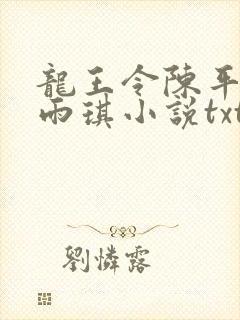 龍王令陳平
雨琪小説txt
劉憐露